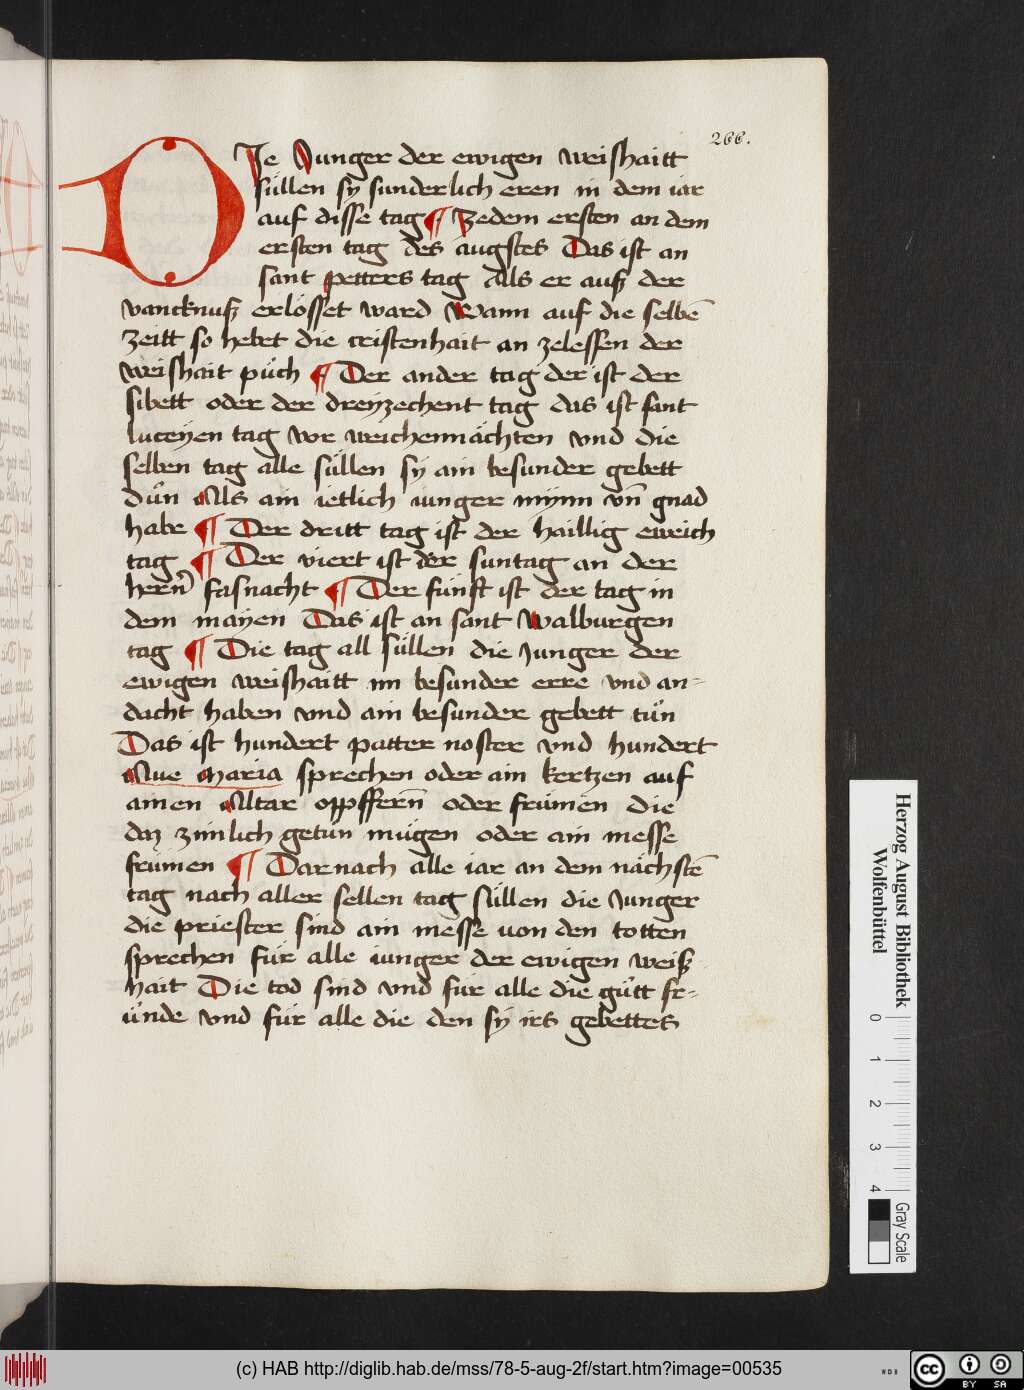 266.
DJe Junger der ewigen weishaitt
süllen sy sunderlich eren in dem iar
auf disse tag ¶ Zedem ersten an dem
ersten tag des augstes Das ist an
sant petters tag Als er auß der
vancknuß erlösset ward Wann auf die selbē
zeitt so hebet die cristenhait an zelessen der
weishait půch ¶ Der ander tag der ist der
sibett oder der dreyzechent tag das ist sant
luceyen tag vor weichennächten vnd die
selben tag alle süllen sy ain besunder gebett
důn Als ain ietlich iunger mynn vn̄ gnad
habe ¶ Der dritt tag ist der haillig eweich
tag ¶ Der viert ist der suntag an der
hern̄ fasnacht ¶ Der fünft ist der tag in
dem mayen Das ist an sant walburgen
tag ¶ Die tag all süllen die Junger der
ewigen weishaitt im besunder erre vnd an=
dacht haben vnd ain besunder gebett tůn
Das ist hundert patter noster vnd hundert
Aue maria sprechen oder ain kertzen auf
ainen Altar oppffern̄ oder frümen die
daz zimlich getun mügen oder ain messe
frümen ¶ Darnach alle iar an dem nächstē
tag nach aller sellen tag süllen die Junger
die priester sind ain messe von den totten
sprechen für alle iunger der ewigen weiß
hait Die tod sind vnd für alle die gůtt fr=
ünde vnd für alle die den sy irs gebettes
Herzog August Bibliothek
Wolfenbüttel
0 1 2 3 4
Gray Scale
(c) HAB http://diglib.hab.de/mss/78-5-aug-2f/start.htm?image=00535
WDB
cc BY SA